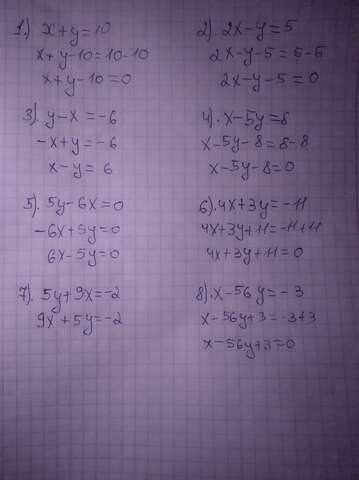 1.) x+y=10
x+y-10=10-10
x+y-10=0
2). 2x-y=5
2x-y-5=5-5
2x-y-5=0
3). y-x=-6
-x+y=-6
x-y=6
4). x-5y=8
x-5y-8=8-8
x-5y-8=0
5). 5y-6x=0
-6x+5y=0
6x-5y=0
6). 4x+3y=-11
4x+3y+11=-11+11
4x+3y+11=0
7). 5y+9x=-2
9x+5y=-2
8). x-56y=-3
x-56y+3=-3+3
x-56y+3=0